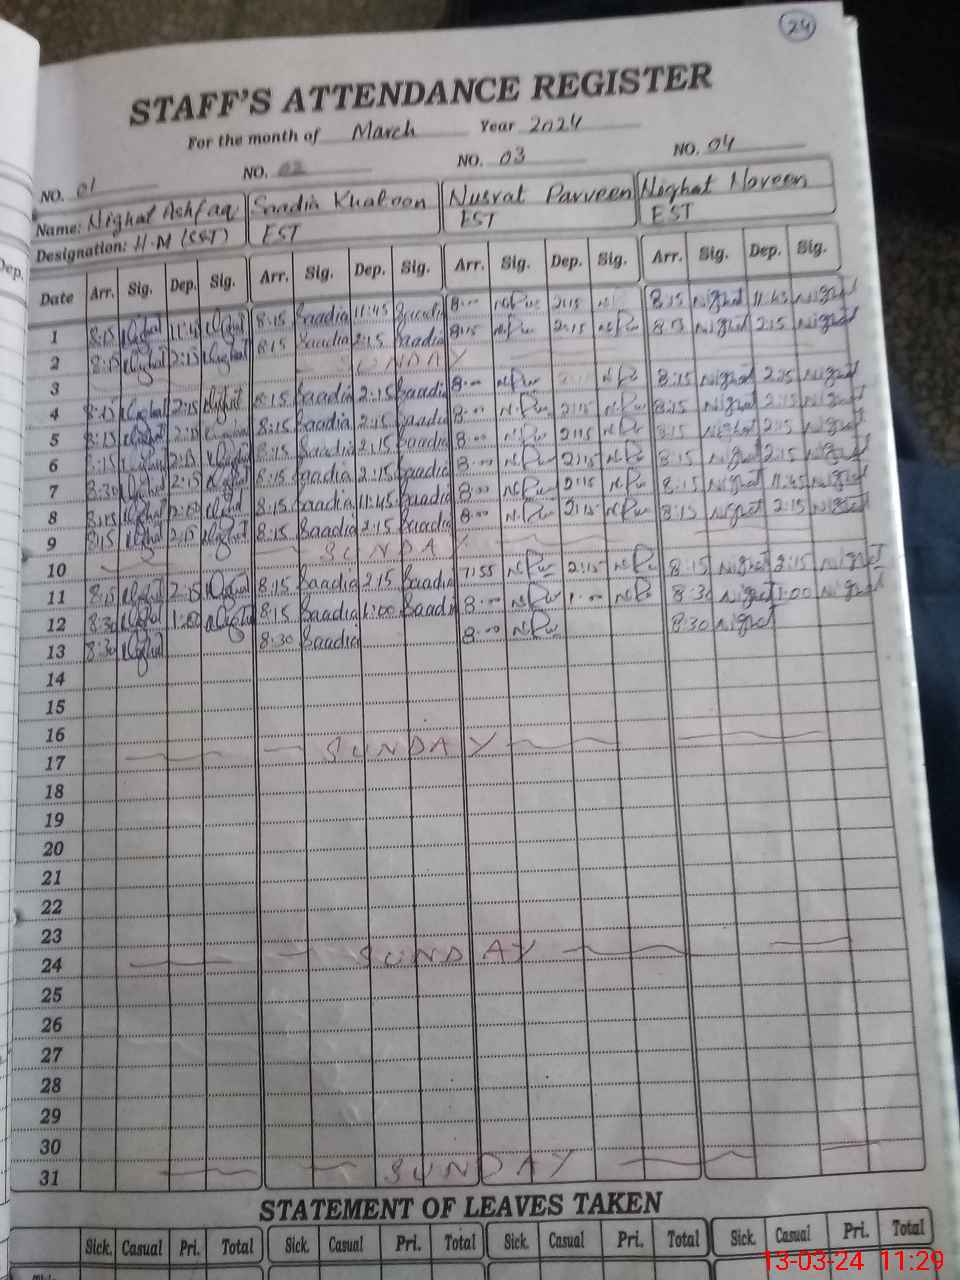 24
STAFF'S ATTENDANCE REGISTER
For the month of March Year 2024
NO. 01 NO. 02 NO. 03 NO. 04
Name: Nighat Ashfaq Saadia Khatoon Nusrat Parveen Nighat Noreen
Designation: H.M (SST) EST EST EST
Dep.
Date Arr. Sig. Dep. Sig. Arr. Sig. Dep. Sig. Arr. Sig. Dep. Sig. Arr. Sig. Dep. Sig.
1 8:15 Nighat 11:45 Nighat 8:15 Saadia 11:45 Saadia 8:00 N.Par 2:15 8:15 Nighat 11:45 Nighat
2 8:15 Nighat 2:15 Nighat 8:15 Saadia 2:15 Saadia 8:15 N.Par 2:15 N.Par 8:15 Nighat 2:15 Nighat
3 SUNDAY
4 8:15 Nighat 2:15 Nighat 8:15 Saadia 2:15 Saadia 8:00 N.Par N.Par 8:15 Nighat 2:15 Nighat
5 8:15 Nighat 2:15 Nighat 8:15 Saadia 2:15 Saadia 8:00 N.Par 2:15 N.Par 8:15 Nighat 2:15 Nighat
6 8:15 Nighat 2:15 Nighat 8:15 Saadia 2:15 Saadia 8:00 N.Par 2:15 N.Par 8:15 Nighat 2:15 Nighat
7 8:30 Nighat 2:15 Nighat 8:15 Saadia 2:15 Saadia 8:00 N.Par 2:15 N.Par 8:15 Nighat 2:15 Nighat
8 8:15 Nighat Nighat 8:15 Saadia 11:45 Saadia 8:00 N.Par 2:15 N.Par 8:15 Nighat 11:45 Nighat
9 8:15 Nighat 2:15 Nighat 8:15 Saadia 2:15 Saadia 8:00 N.Par 2:15 N.Par 8:15 Nighat 2:15 Nighat
10 SUNDAY
11 8:15 Nighat 2:15 Nighat 8:15 Saadia 2:15 Saadia 7:55 N.Par 2:15 N.Par 8:15 Nighat 2:15 Nighat
12 8:30 Nighat 1:00 Nighat 8:15 Saadia 1:00 Saadia 8:00 N.Par 1:00 N.Par 8:30 Nighat 1:00 Nighat
13 8:30 Nighat 8:30 Saadia 8:00 N.Par 8:30 Nighat
14
15
16
17 SUNDAY
18
19
20
21
22
23
24 SUNDAY
25
26
27
28
29
30
31 SUNDAY
STATEMENT OF LEAVES TAKEN
Sick. Casual Pri. Total Sick. Casual Pri. Total Sick. Casual Pri. Total Sick. Casual Pri. Total
13-03-24 11:29